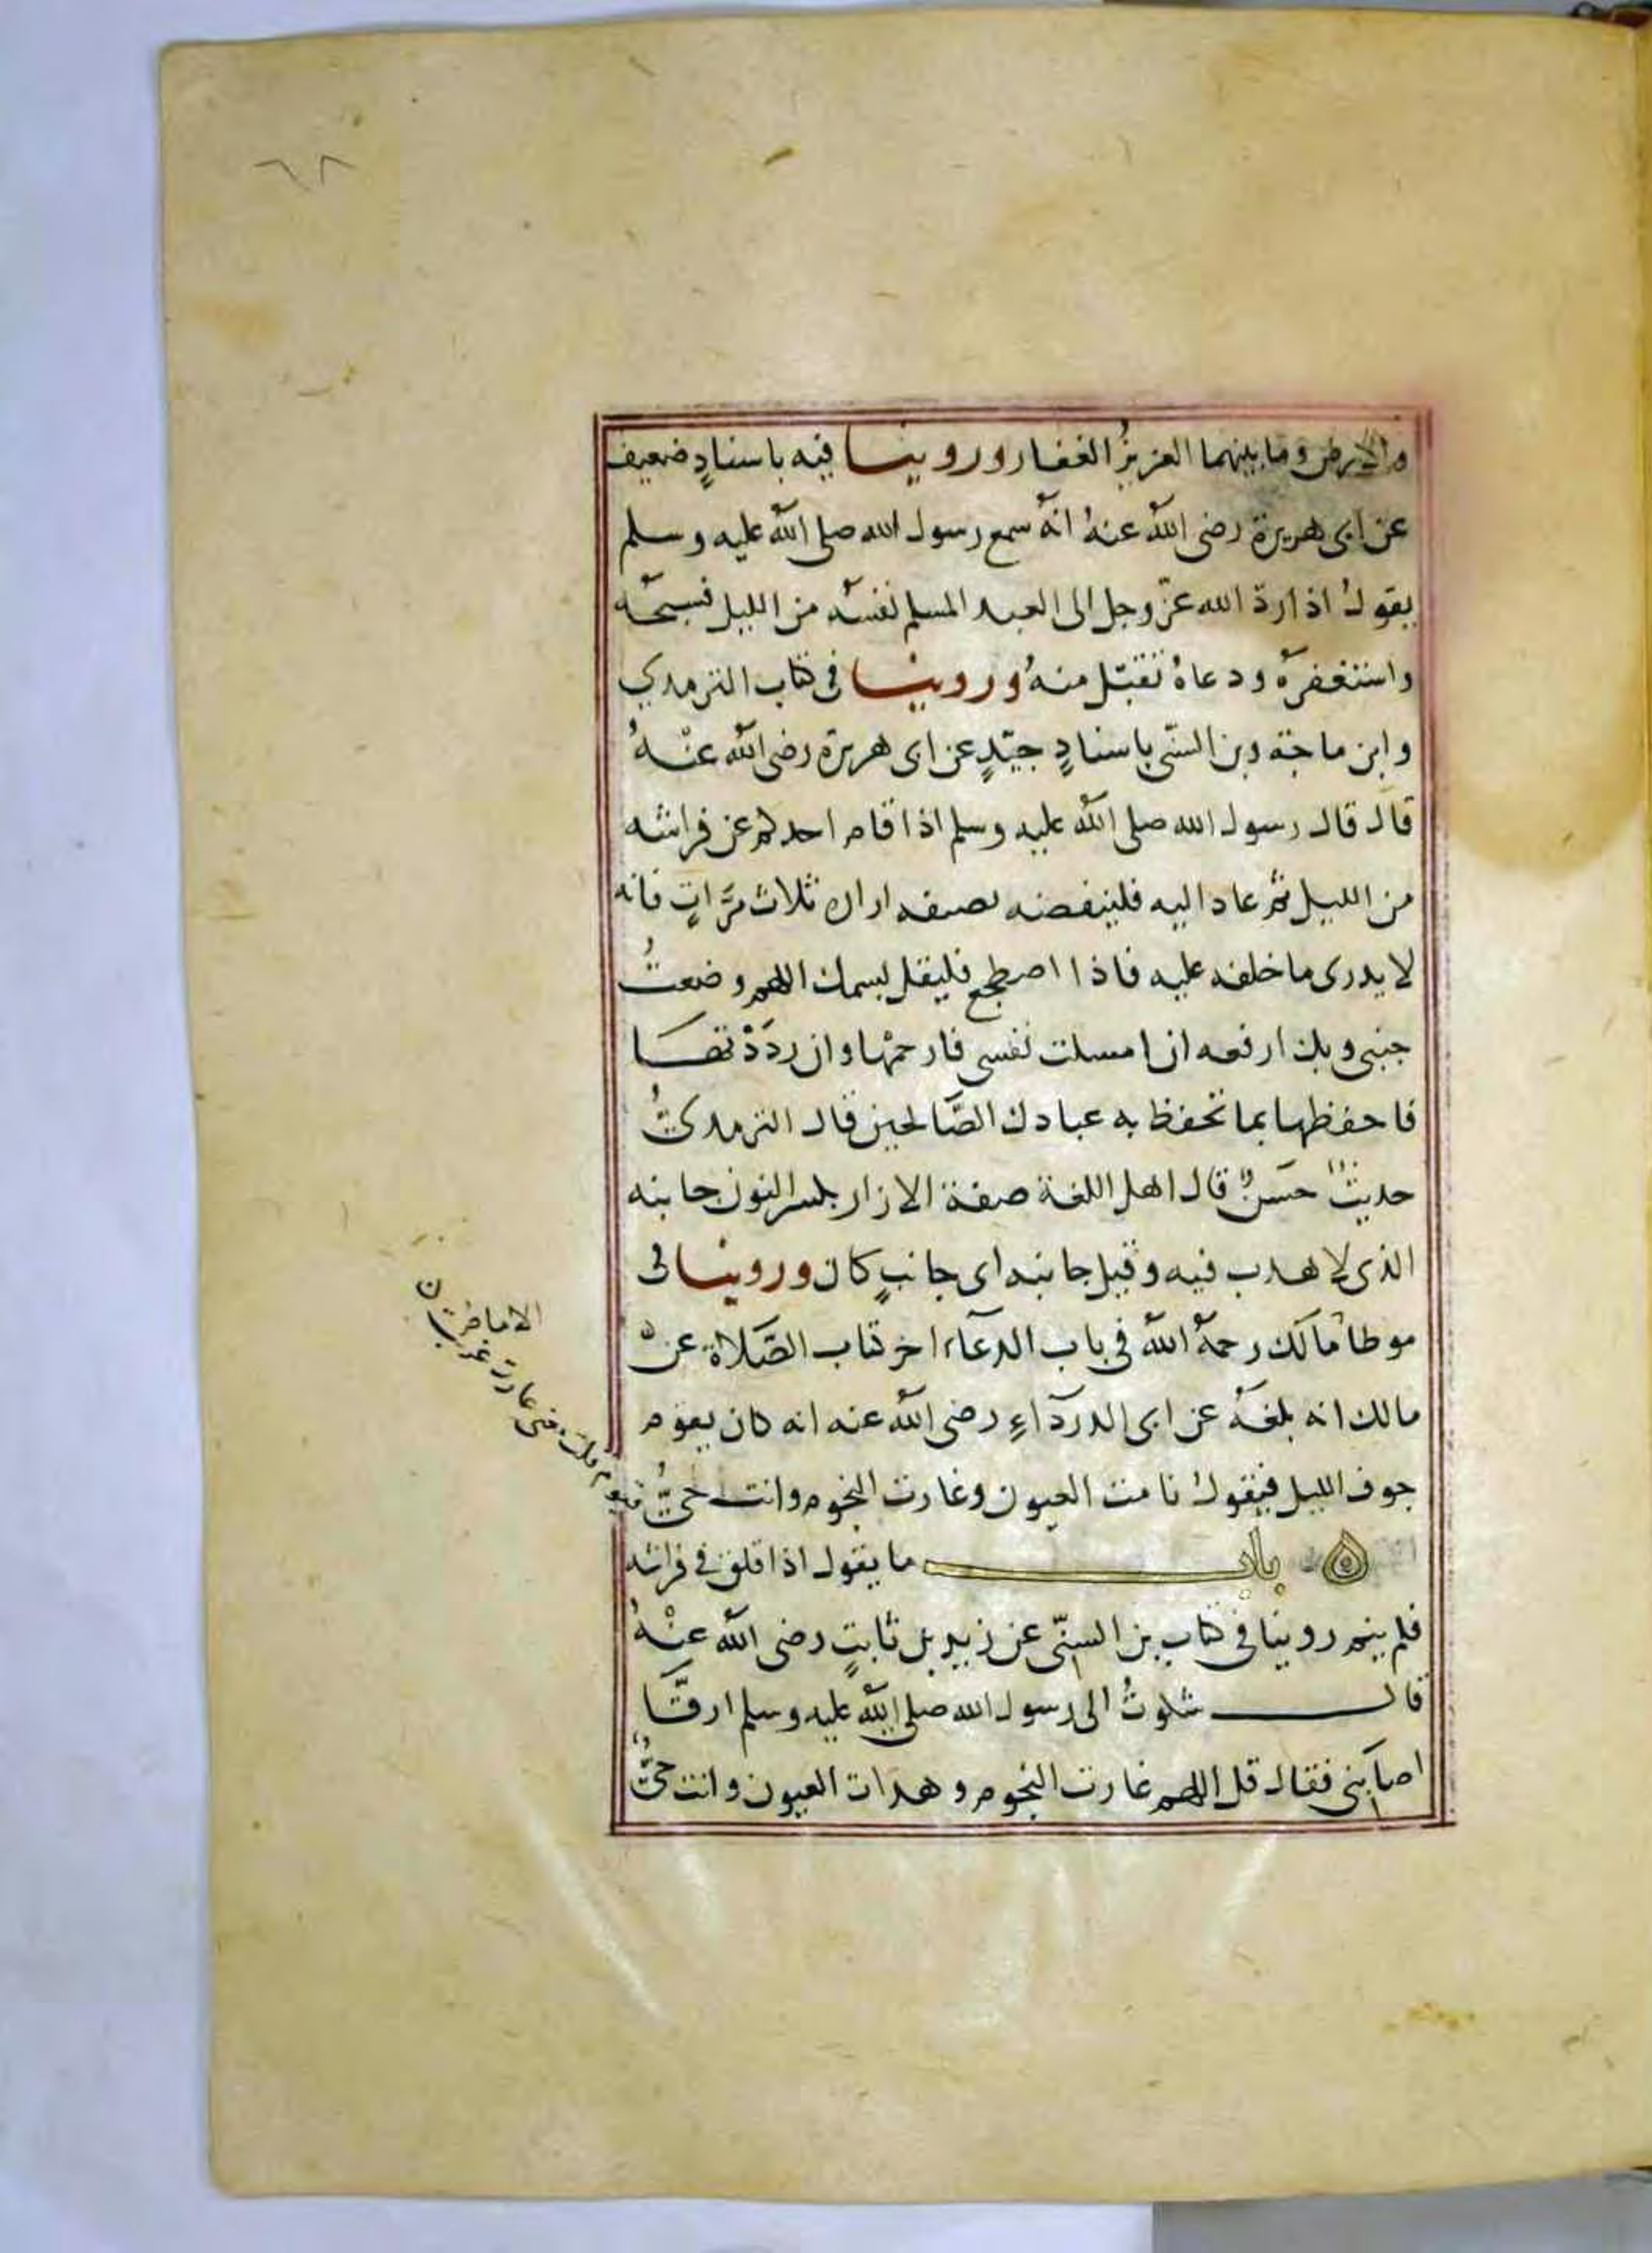 ٦٨
والارض وما بينهما العزيزُ الغفار وروينا فيه باسنادٍ ضعيف
عن ابى هريرة رضى اللّٰه عنهُ انهُ سمع رسول الله صلى اللّٰه عليه وسلم
يقولُ اذا ردّ الله عزّ وجل الى العبد المسلم نفسَه من الليل فسبحَه
واستغفرهُ ودعاهُ تقبّل منهُ وروينا فى كتاب الترمدي
وابن ماجة وبن السنّى باسنادٍ جيّدٍ عن ابى هريرة رضى اللّٰه عنْهُ
قال قال رسول الله صلى اللّٰه عليه وسلم اذا قام احدكم عن فراشه
من الليل ثم عاد اليه فلينفضه بصنفه ازاره ثلاث مرَّاتٍ فانه
لا يدرى ما خلفه عليه فاذا اصطجع فليقل بسمك اللهم وضعتُ
جنبى وبك ارفعه ان امسكت نفسى فارحمْها وان رددْتهَا
فاحفظها بما تحفظ به عبادك الصَّالحين قال الترمدىُّ
حديثٌ حسَنٌ قال اهل اللغة صنفة الازار بكسر النون جانبه
الذى لا هدب فيه وقيل جانبه اى جانبٍ كان وروينا فى
موطا مالك رحمهُ اللّٰه فى باب الدعآء اخر كتاب الصَّلاة عنْ
مالك انه بلغهُ عن ابى الدردآءِ رضى اللّٰه عنه انه كان يقوم
جوف الليل فيقولُ نامت العيون وغارت النجوم وانت حىٌّ قيوم قلت معنى غارت غربت
باب ما يقول اذا قلق فى فراشه
فلم ينم روينا فى كتاب بن السنّى عن زيد بن ثابتٍ رضى اللّٰه عنْهُ
قال شكوتُ الى رسول الله صلى اللّٰه عليه وسلم ارقًا
اصابنى فقال قل اللهم غارت النجوم وهدات العيون وانت حىٌّ